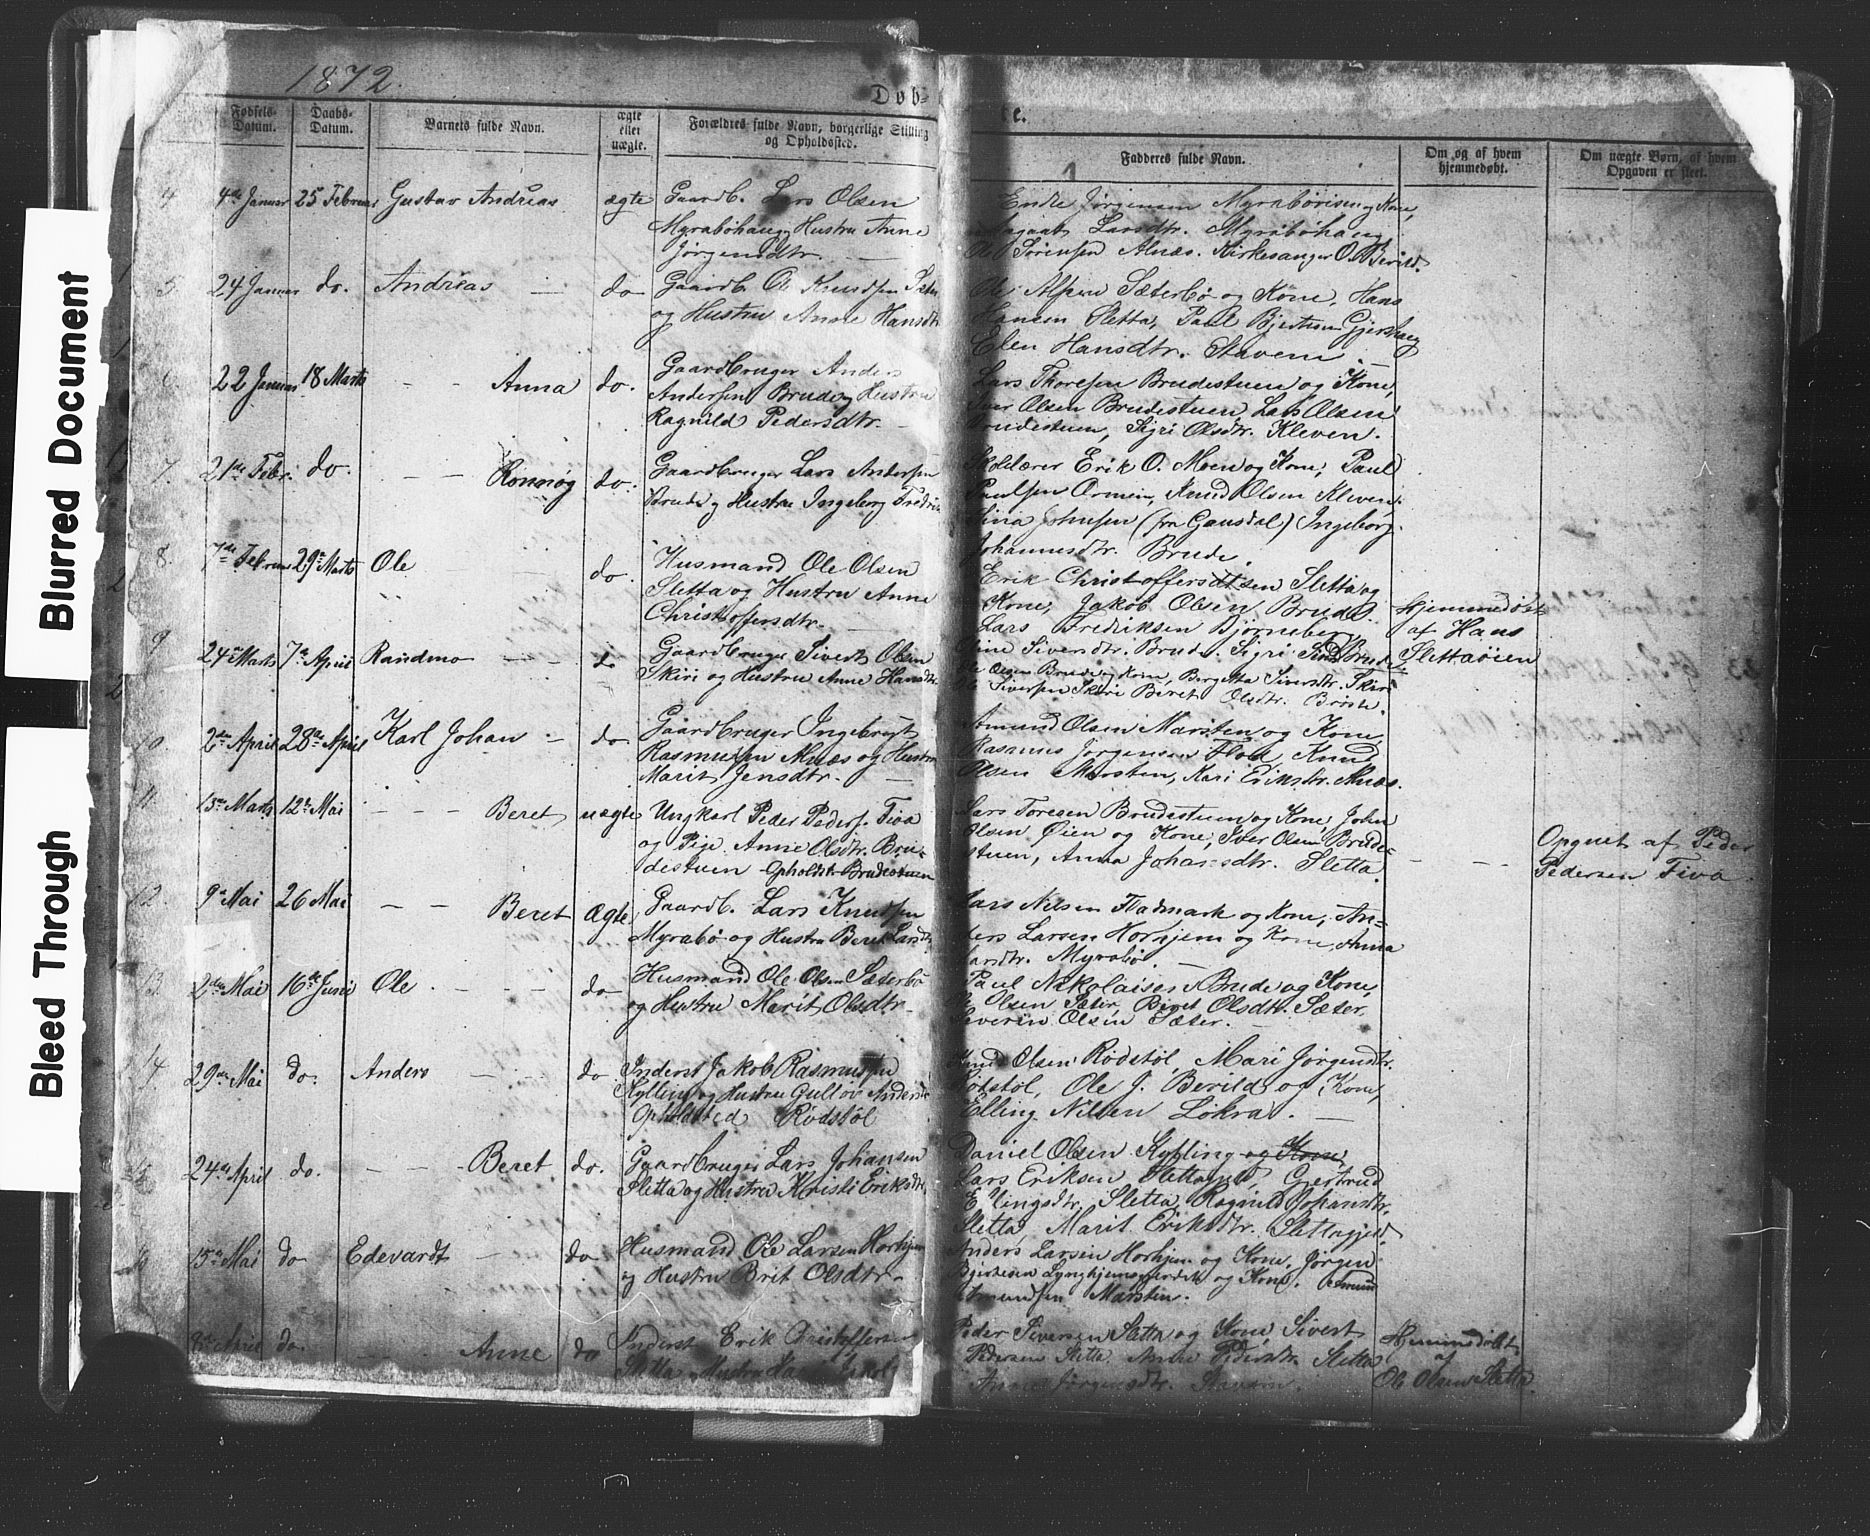 1872.
Døb-
te.
Fødsels-Datum.
Daabs-Datum.
Barnets fulde Navn.
ægte eller uægte.
Forældres fulde Navn, borgerlige Stilling og Opholdssted.
Fadderes fulde Navn.
Om og af hvem hjemmedøbt.
Om uægte Børn, af hvem Opgaven er skeet.
Blurred Document
Bleed Through
4 4de Januar 25 Februar Gustav Andreas ægte Gaardb. Lars Olsen
Myrabøhaug og Hustru Anne
Jørgensdtr.
Endre Jørgensen Myrabøvisen og Kone,
Larsdtr. Myrabøhaug
Ole Sørensen Alnæs. Kirkesanger O. Bevild.
5. 24 Januar do. Andreas do Gaardb. Ole Knudsen Sæter
og Hustru Anne Hansdtr
Ole Alfsen Sæterbø og Kone, Hans
Hansen Sletta, Paul Bjertsen Gjershaug
Elen Hansdtr. Stavem.
6. 22 Januar 18 Marts Anna do. Gaardbruger Anders
Andersen Brude og Hustru
Ragnild Pedersdtr.
Lars Thoresen Brudestuen og Kone,
Iver Olsen Brudestuen, Lars Olsen
Brudestuen, Sigri Olsdtr. Kleven.
7. 21de Febr. do. Ronnøg do. Gaardbruger Lars Andersen
Brude og Hustru Ingeborg Fredrik
Skolelærer Erik O. Moen og Kone, Paul
Paulsen Ormein, Knud Olsen Kleven.
Sina Johnsen (fra Gausdal) Ingeborg
Johannesdtr. Brude.
8. 7de Februar 29de Marts Ole do. Husmand Ole Olsen
Sletta og Hustru Anne
Christoffersdtr.
Erik Christoffersdtsen Sletta og
Kone, Jakob Olsen Brude.
Lars Fredriksen Bjørneberg
Sine Siversdtr. Brude. Sigri Brude
Hjemmedøbt
af Hans
Slettaøien
9 24de Marts 7de April Randmo do Gaardbruger Sivert Olsen
Skiri og Hustru Anne Hansdtr.
Ole Olsen Brude og Kone, Bergitta Siversdtr. Skiri
Ole Siversen Skiri Beret Olsdtr. Brøste.
10. 2de April 28de April Karl Johan do Gaardbruger Ingebrigt
Rasmussen Alnæs og Hustru
Marit Jensdtr.
Amund Olsen Marsten og Kone,
Rasmus Jørgensen Flod, Knud
Olsen Marsten, Kari Eriksdtr. Alnæs.
11 13de Marts 12te Mai Beret uægte Ungkarl Peder Peders. Fiva
og Pige Anne Olsdtr. Bru-
destuen Opholdst. Brudestuen
Lars Toresen Brudestuen og Kone, John
Olsen Øien og Kone, Iver Olsen Brude-
stuen, Anna Johansdtr. Sletta.
Opgivet af Peder
Pedersen Fiva.
12. 9de Mai 26 Mai Beret Ægte Gaardb. Lars Knudsen
Myrabø og Hustru Beret Larsdtr
Lars Nilsen Fladmark og Kone, An-
ders Larsen Horhjem og Kone, Anna
Larsdtr. Myrabø.
13. 2den Mai 16de Juni Ole do Husmand Ole Olsen Sæterbø
og Hustru Marit Olsdtr.
Paul Nikolaisen Brude og Kone,
Ole Olsen Sæter, Beret Olsdtr. Sæter.
Severin Olsen Sæter.
14. 29de Mai do. Anders do Inderst Jakob Rasmussen
Kylling og Hustru Gulløv Andersdtr
Opholdsted Rødstøl
Knud Olsen Rødstøl, Mari Jørgensdtr.
Rødstøl, Ole J. Bevild og Kone,
Elling Nilsen Løkra.
15 24de April do. Beret do. Gaardbruger Lars Johansen
Sletta og Hustru Kristi Eriksdtr.
Daniel Olsen Kylling og Kone,
Lars Eriksen Slettagjeld, Gjertrud
Ellingsdtr. Sletta, Ragnild Johansdtr.
Sletta, Marit Eriksdtr. Slettagjeld.
16 15de Mai do Edevardt do Husmand Ole Larsen Horhjem
og Hustru Brit Olsdtr.
Anders Larsen Horhjem og Kone, Jørgen
Bjertesen Lynghjemsgjerdet og Kone, Amund
Amundsen Marsten.
8de April do. Anne do Inderst Erik Christoffersen
Sletta Hustru
Peder Siversen Sletta og Kone, Sivert
Pedersen Sletta. Anne Pedersdtr. Sletta
Anne Jørgensdtr. Stavem.
Hjemmedøbt
Ole Olsen Sletta.